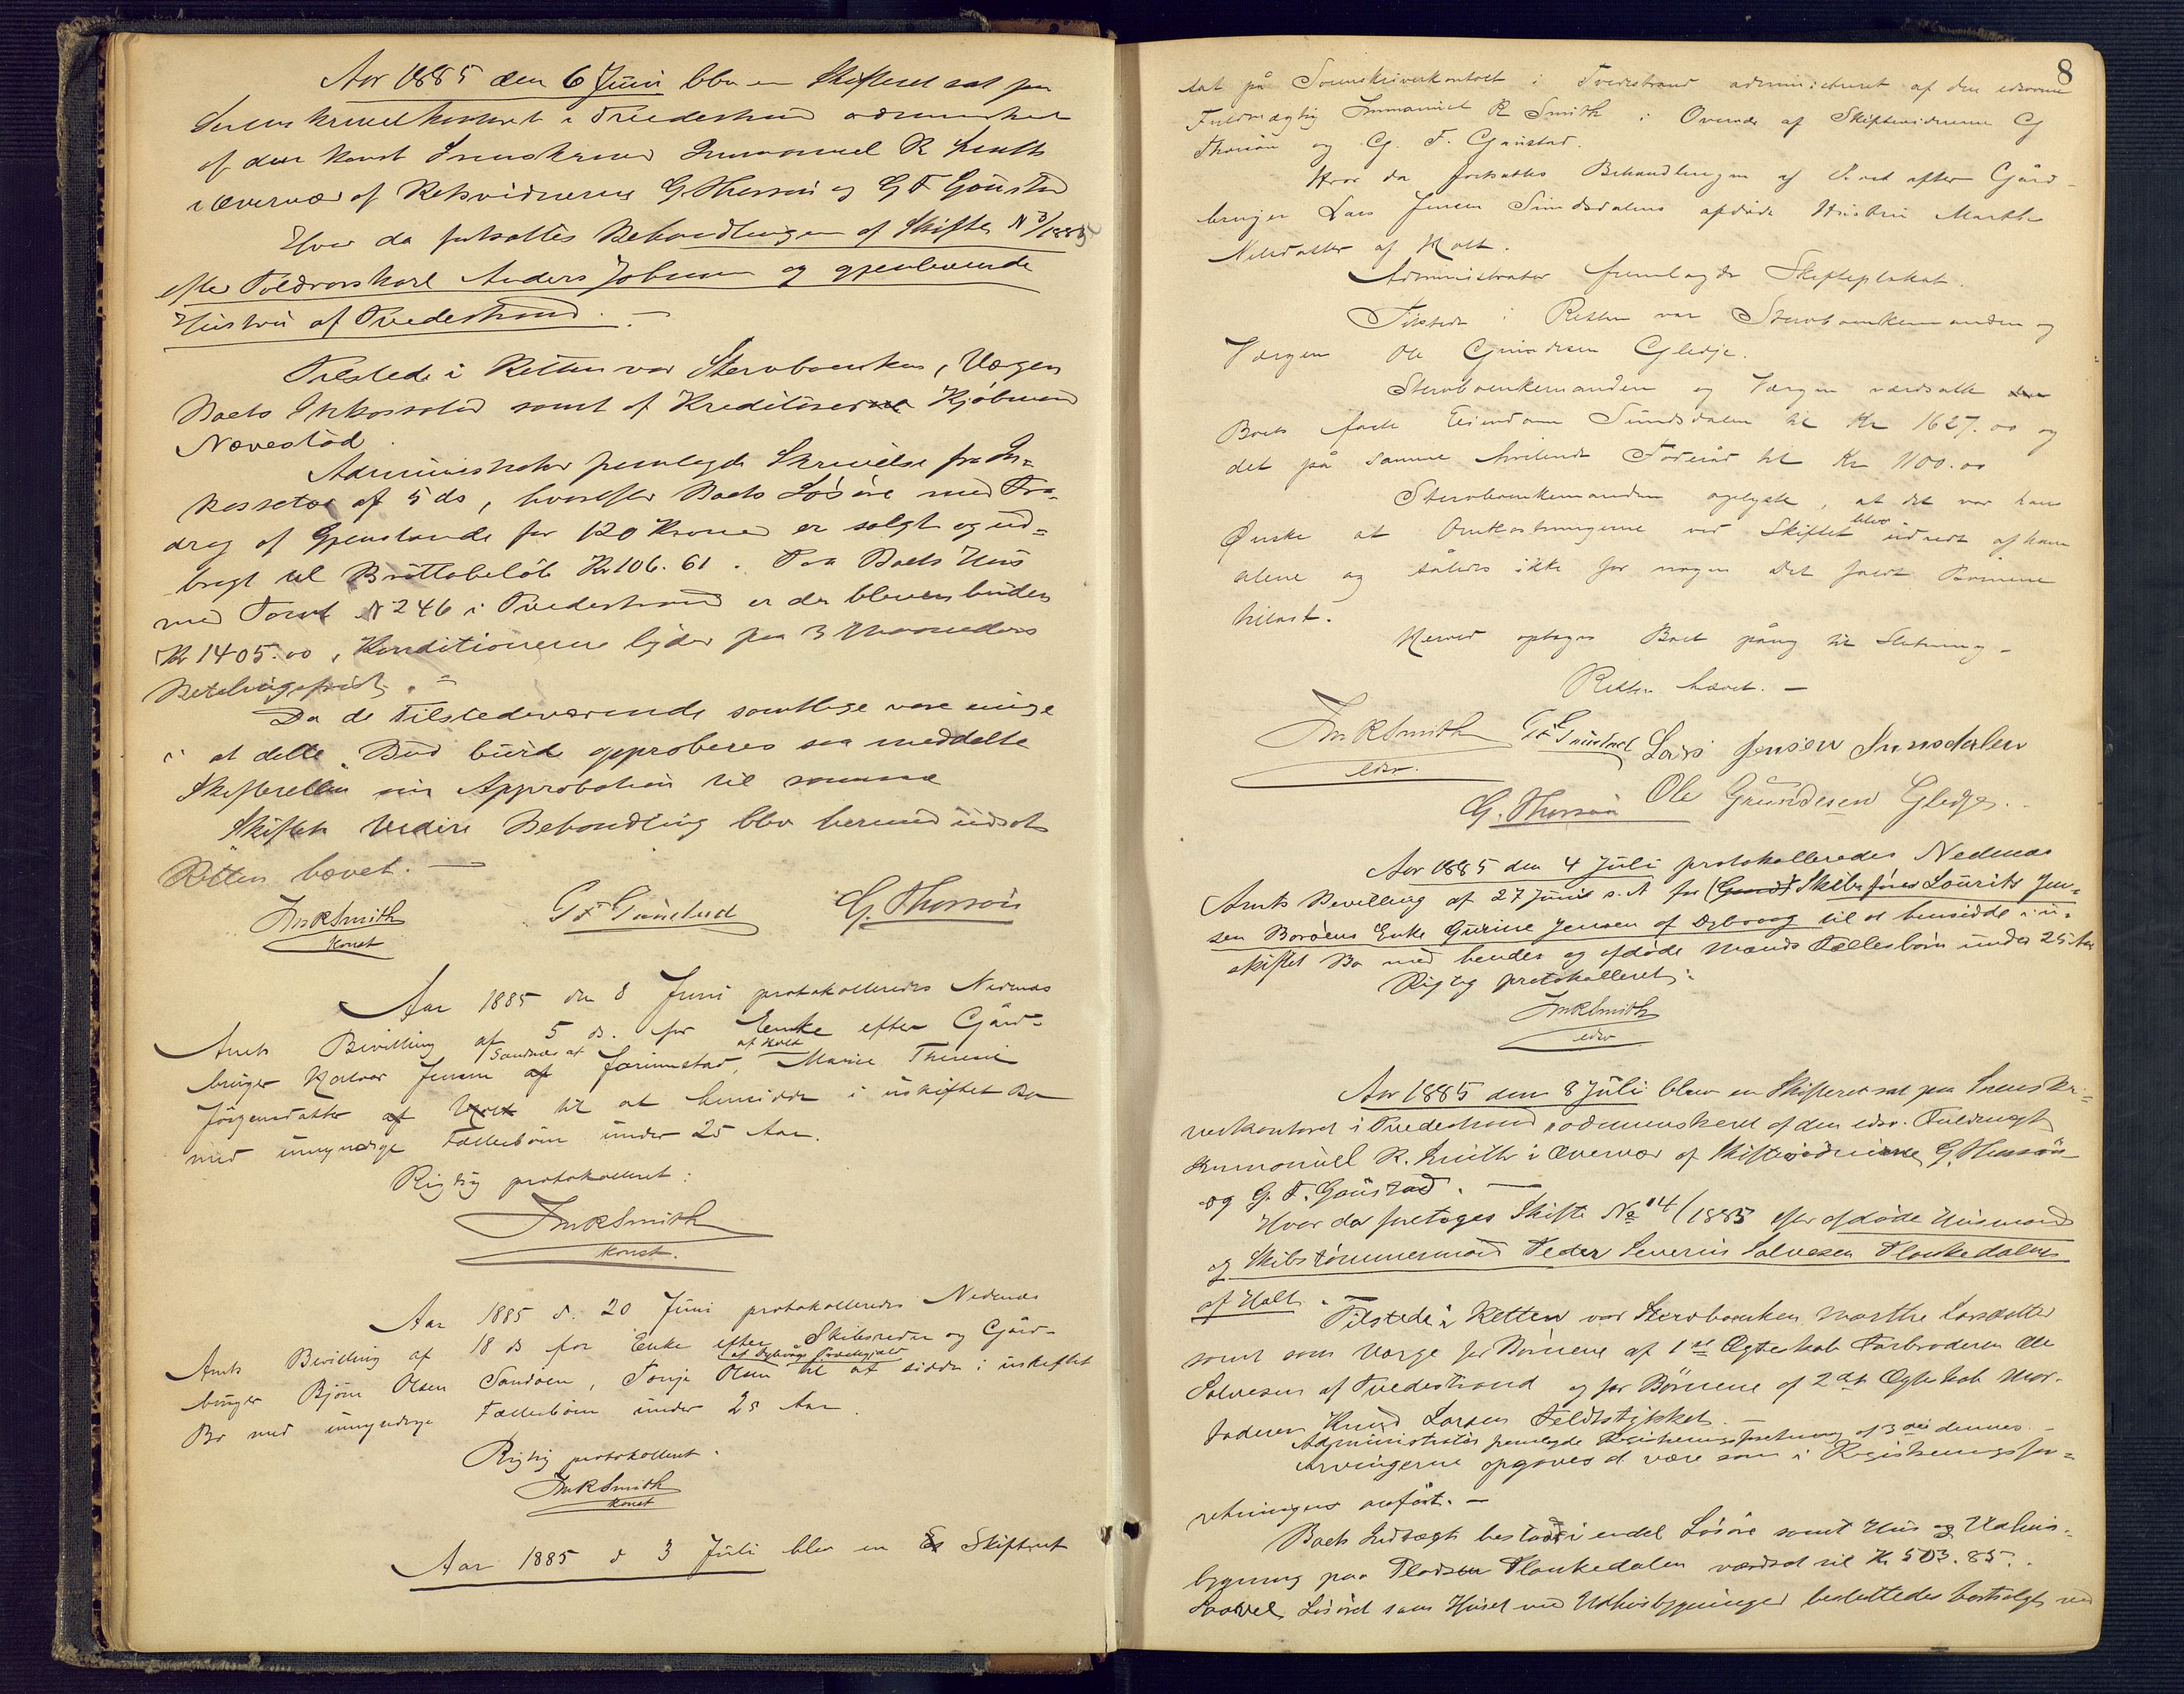 Aar 1885 den 6 Juni blev en Skifteret sat paa
Sorenskriverkontoret i Tvedestrand administreret
af den konst Sorenskriver Immanuel R Smith
i Overvær af Retsvidnerne G. Thorsøn og G F Gaustad
Hvor da fortsattes Behandlingen af Skifte N 3/1885
efter Toldrorskarl Anders Johnsen og gjenlevende
Hustru af Tvedestrand. –
Tilstede i Retten var Stervboenken, Værgen
Boets Inkassator samt af Kreditorerne Kjøbmand
Nævestad.
Administrator fremlagde Skrivelse fra In-
kassator af 5 ds, hvorefter Boets Løsøre med Fra-
drag af Gjenstande for 120 Kroner er solgt og ud-
bragt til Bruttobeløb Kr 106.61. Paa Boets Hus
med Tomt N 246 i Tvedestrand er der bleven buden
Kr 1405.00, Konditionerne lyder paa 3 Maaneders
Betalingsfrist. –
Da de Tilstedeværende samtlige vare enige
i at dette Bud burde approberes saa meddelte
Skifteretten sin Approbation til samme
Skiftets videre Behandling blev hermed udsat
Retten hævet. –
ImRSmith G F Gaustad G. Thorsøn
konst
Aar 1885 den 8 Juni protokolleredes Nedenæs
Amts Bevilling af 5 ds. for Enke efter Gård-
bruger Halvor Jensen Sandnæs af Farinustad, af Holt Marie Thrine
Jørgensdatter af Holt til at hensidde i uskiftet Bo
med umyndige Fællesbørn under 25 Aar.
Rigtig protokolleret:
ImRSmith
konst.
Aar 1885 d. 20 Juni protokolleredes Nedenæs
Amts Bevilling af 18 ds for Enke efter Skibsreder og Gård-
bruger Bjørn Olsen Sandøen, Tonje Olsen af Dybvågs Præstegjæld til at sidde i uskiftet
Bo med umyndige Fællesbørn under 25 Aar.
Rigtig protokolleret.
ImRSmith
konst
Aar 1885 d 3 Juli blev en Skifteret
8
sat på Sorenskriverkontoret i Tvedestrand administreret af den edsvorne
Fuldmægtig Immanuel R Smith i Overvær af Skiftevidnerne G
Thorsøn og G. F. Gaustad.
Hvor da fortsattes Behandlingen af Boet efter Gård-
bruger Lars Jensen Sundsdalens afdøde Hustru Marthe
Nilsdatter af Holt.
Administrator fremlagde Skifteplakat.
Tilstede i Retten var Stervboenkemanden og
Værgen Ole Grundesen Gledje.
Stervboenkemanden og Værgen værdsatte den
Boets faste Eiendom Sundsdalen til Kr 1627.00 og
det på samme hvilende Føderåd til Kr 1100.00
Stervboenkemanden oplyste, at det var hans
Ønske at Omkostningerne ved Skiftet blev udredt af ham
alene og således ikke for nogen Del faldt Børnene
tillast.
Herved optages Boet påny til Slutning –
Retten hævet. –
ImRSmith G F Gaustad Lars Jensen Sunsdalen
edsv. G. Thorsøn Ole Grundesen Gledje.
Aar 1885 den 4 Juli protokolleredes Nedenæs
Amts Bevilling af 27 Juni s. A for Skibsfører Lourits Jen-
sen Borøens Enke Gurine Jensen af Dybvaag til at hensidde i u-
skiftet Bo med hendes og afdøde Mands Fællesbørn under 25 Aar
Rigtig protokolleret:
ImRSmith
edsv
Aar 1885 den 8 Juli blev en Skifteret sat paa Sorenskri-
verkontoret i Tvedestrand administreret af den edsv. Fuldmægt
Immanuel R. Smith i Overvær af Skiftevidnerne G. Thorsøn
og G. F. Gaustad. –
Hvor da foretoges Skifte No 14/1885 efter afdøde Husmand
og Skibstømmermand Peder Severin Salvesen Plankedalen
af Holt. –
Tilstede i Retten var Stervboenken Marthe Larsdatter
samt som Værge for Børnene af 1ste Ægteskab Farbroderen Ole
Salvesen af Tvedestrand og for Børnene af 2det Ægteskab Mor-
faderen Knud Larsen Feldtstykket. –
Administrator fremlagde Registreringsforretning af 3die dennes. –
Arvingerne opgaves at være som i Registreringsfor-
retningen anført. –
Boets Indtægt bestaar i endel Løsøre samt Hus og Udhus-
bygning paa Pladsen Plankedalen værdsat til Kr 503.85.
Saavel Løsøret som Huset med Udhusbygninger besluttedes bortsolgt ved